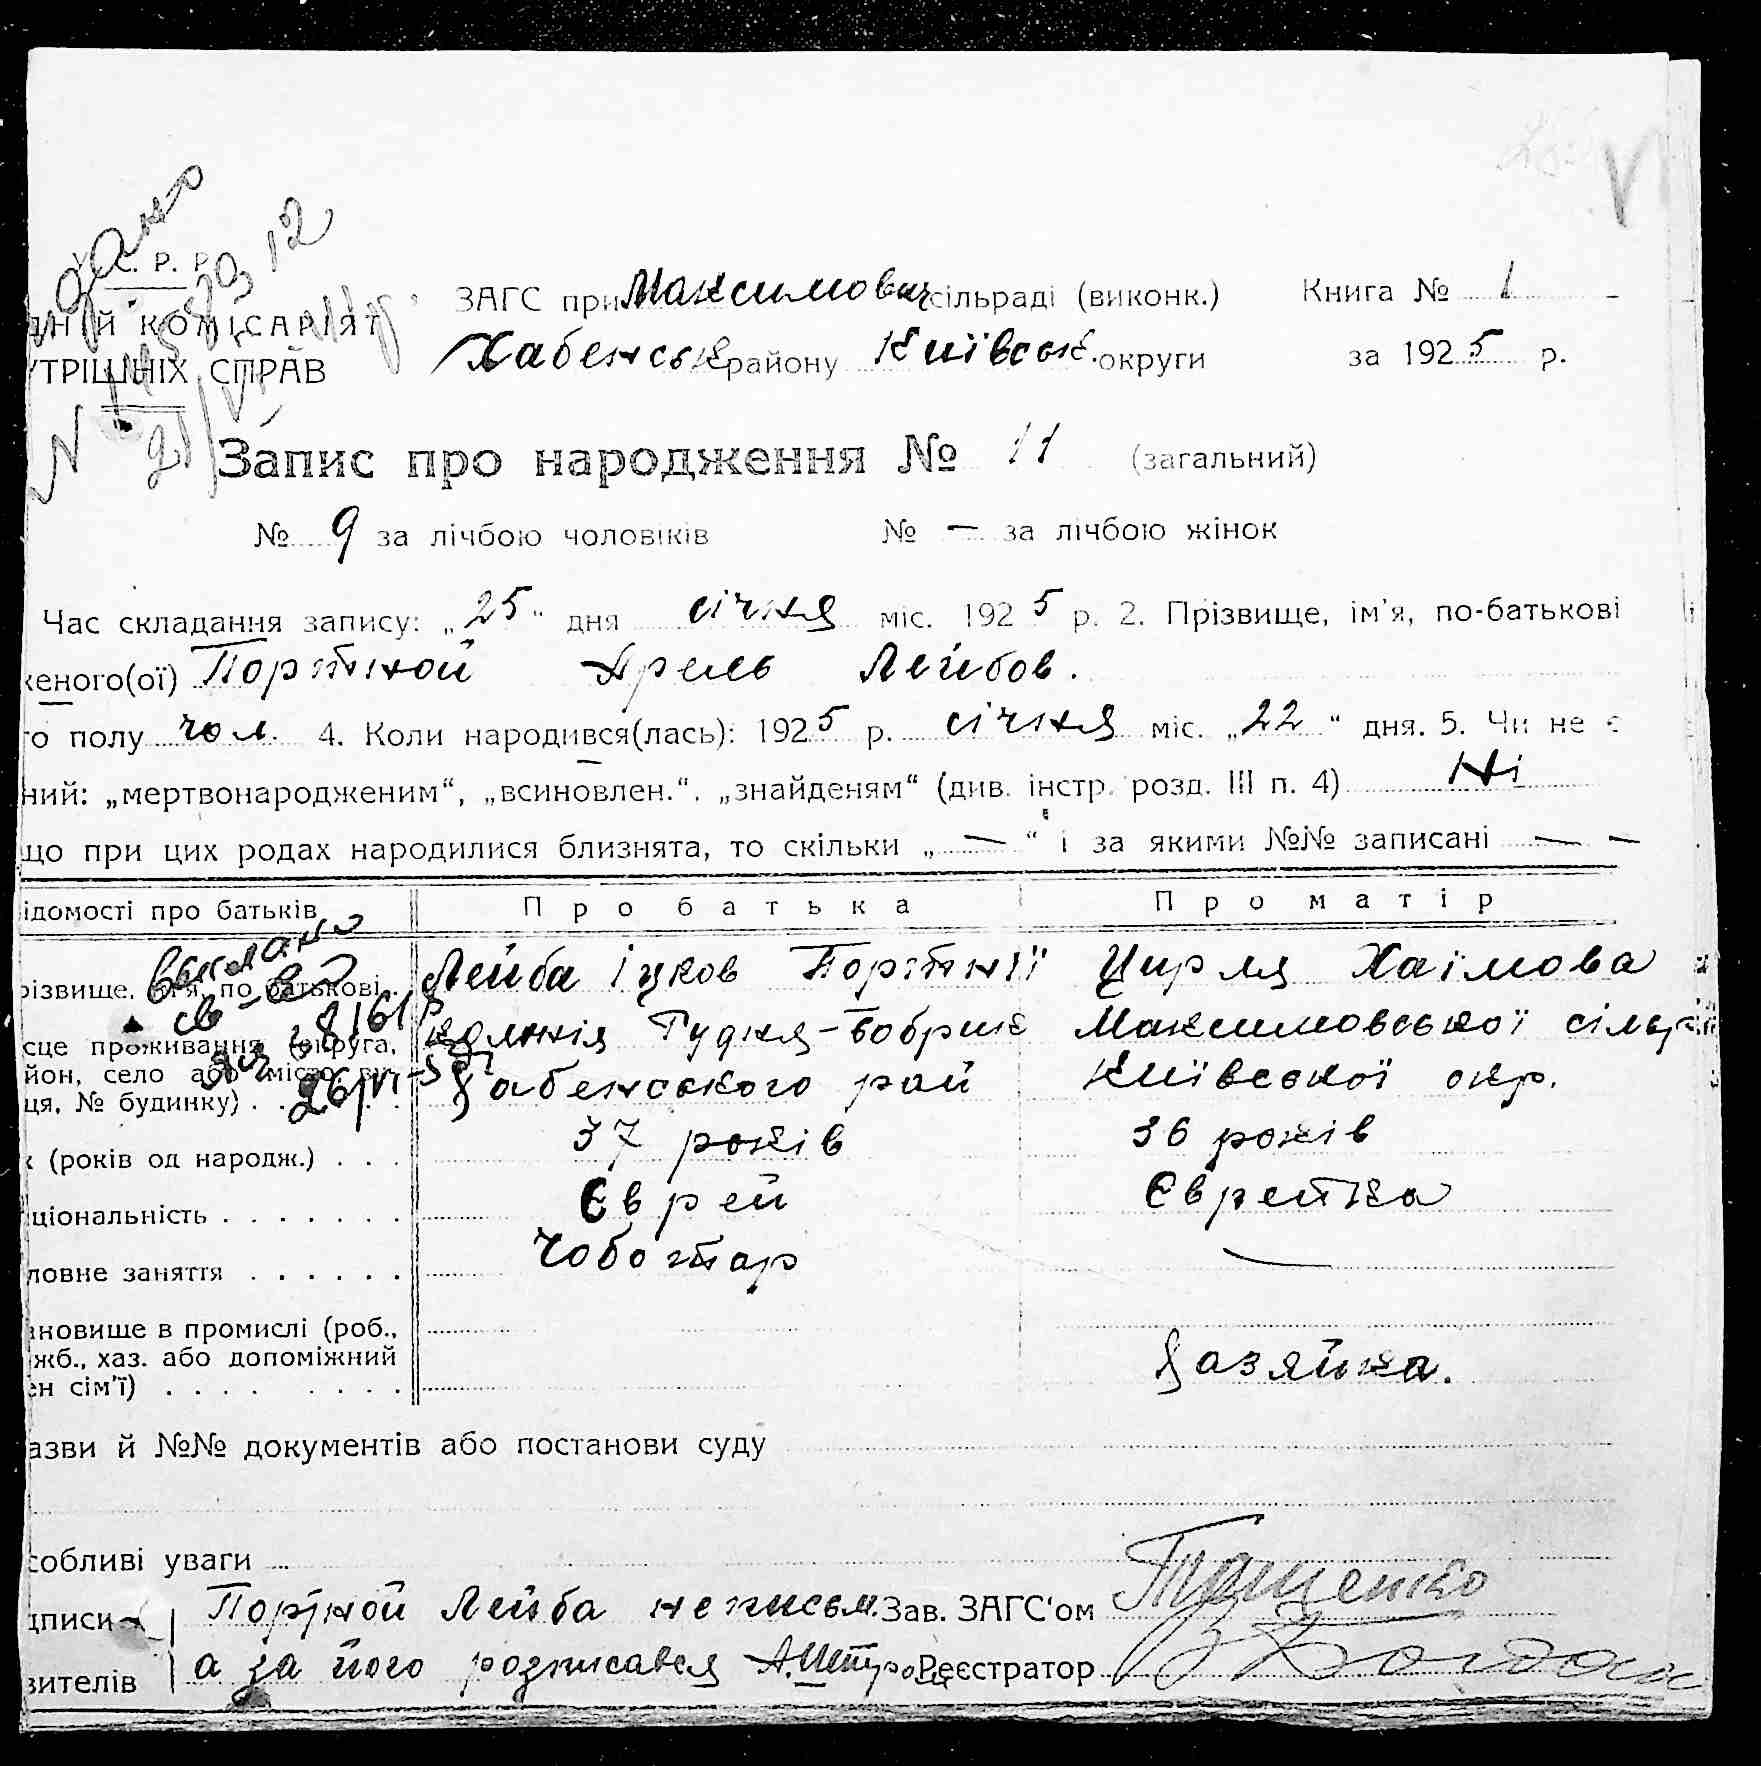 У. С. Р. Р.
ЗАГС при Максимович сільраді (виконк.) Книга № 1
КОМІСАРІЯТ
СПРАВ
Хабенськ району Київськ. округи за 1925 р.
Запис про народження № 11 (загальний)
№ 9 за лічбою чоловіків № — за лічбою жінок
Час складання запису: „25“ дня січня міс. 1925 р. 2. Прізвище, ім'я, по-батькові
женого(ої) Портной Арель Лейбов.
го полу чол. 4. Коли народився(лась): 1925 р. січня міс. „22“ дня. 5. Чи не є
ний: „мертвонародженим“, „всиновлен.“, „знайденям“ (див. інстр. розд. III п. 4) Ні
що при цих родах народилися близнята, то скільки „—“ і за якими №№ записані — —
ідомості про батьків Про батька Про матір
різвище, ім'я, по батькові Лейба Іцков Портній Цирля Хаімова
сце проживання (округа, колонія Рудня-Бобрик Максимовської сільр
йон, село або місто, ву-
ця, № будинку) Хабенського рай Київської окр.
к (років од народж.) 37 років 36 років
ціональність Єврей Єврейка
ловне заняття Чоботар —
ановище в промислі (роб.,
жб., хаз. або допоміжний
ен сім'ї) Хазяйка.
азви й №№ документів або постанови суду
собливі уваги
дписи Портной Лейба неписьм. Зав. ЗАГС'ом
вителів а за його розписався Реєстратор